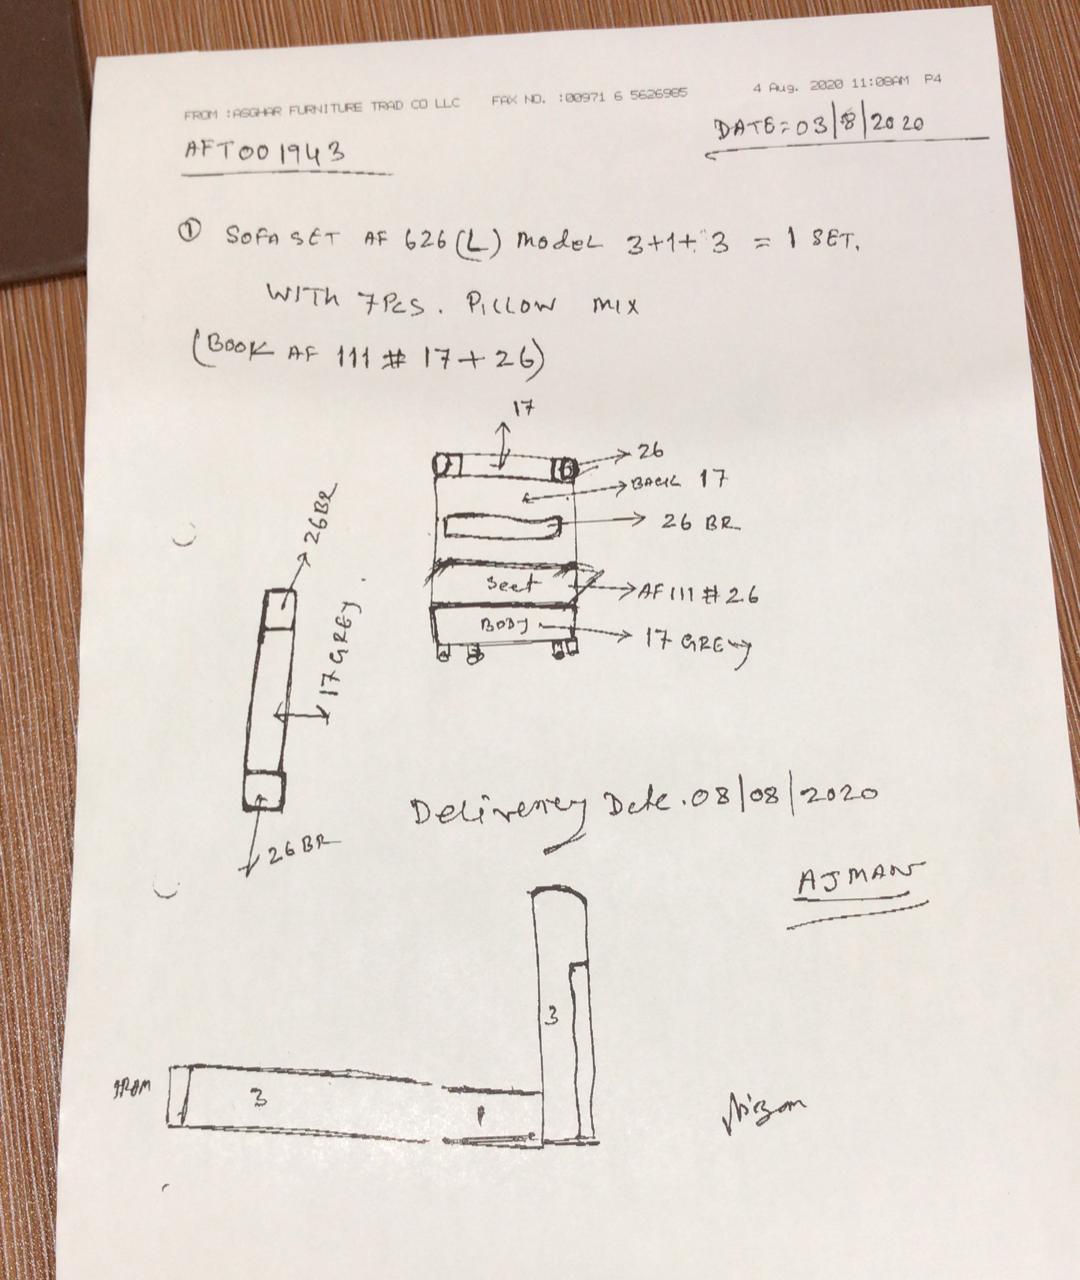 FROM :ASGHAR FURNITURE TRAD CO LLC FAX NO. :00971 6 5626985 4 Aug. 2020 11:08AM P4
AFT001943
DATE=03/8/2020
① SOFA SET AF 626(L) MODEL 3+1+3 = 1 SET.
WITH 7PCS. PILLOW MIX
(BOOK AF 111 # 17+26)
17
26
BACK 17
26 BR
Seet
AF 111 # 26
BODY
17 GREY
26BR
17 GREY.
26BR
Delivery Date.08/08/2020
AJMAN
3
3
1